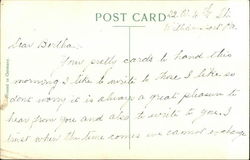 POST CARD
Dear Bertha.
Your pretty cards to hand this
morning I like to write to those I like so
done worry it is always a great pleasure to
hear from you and also to write to you. I
trust when the time comes we cannot exchange
Printed in Germany